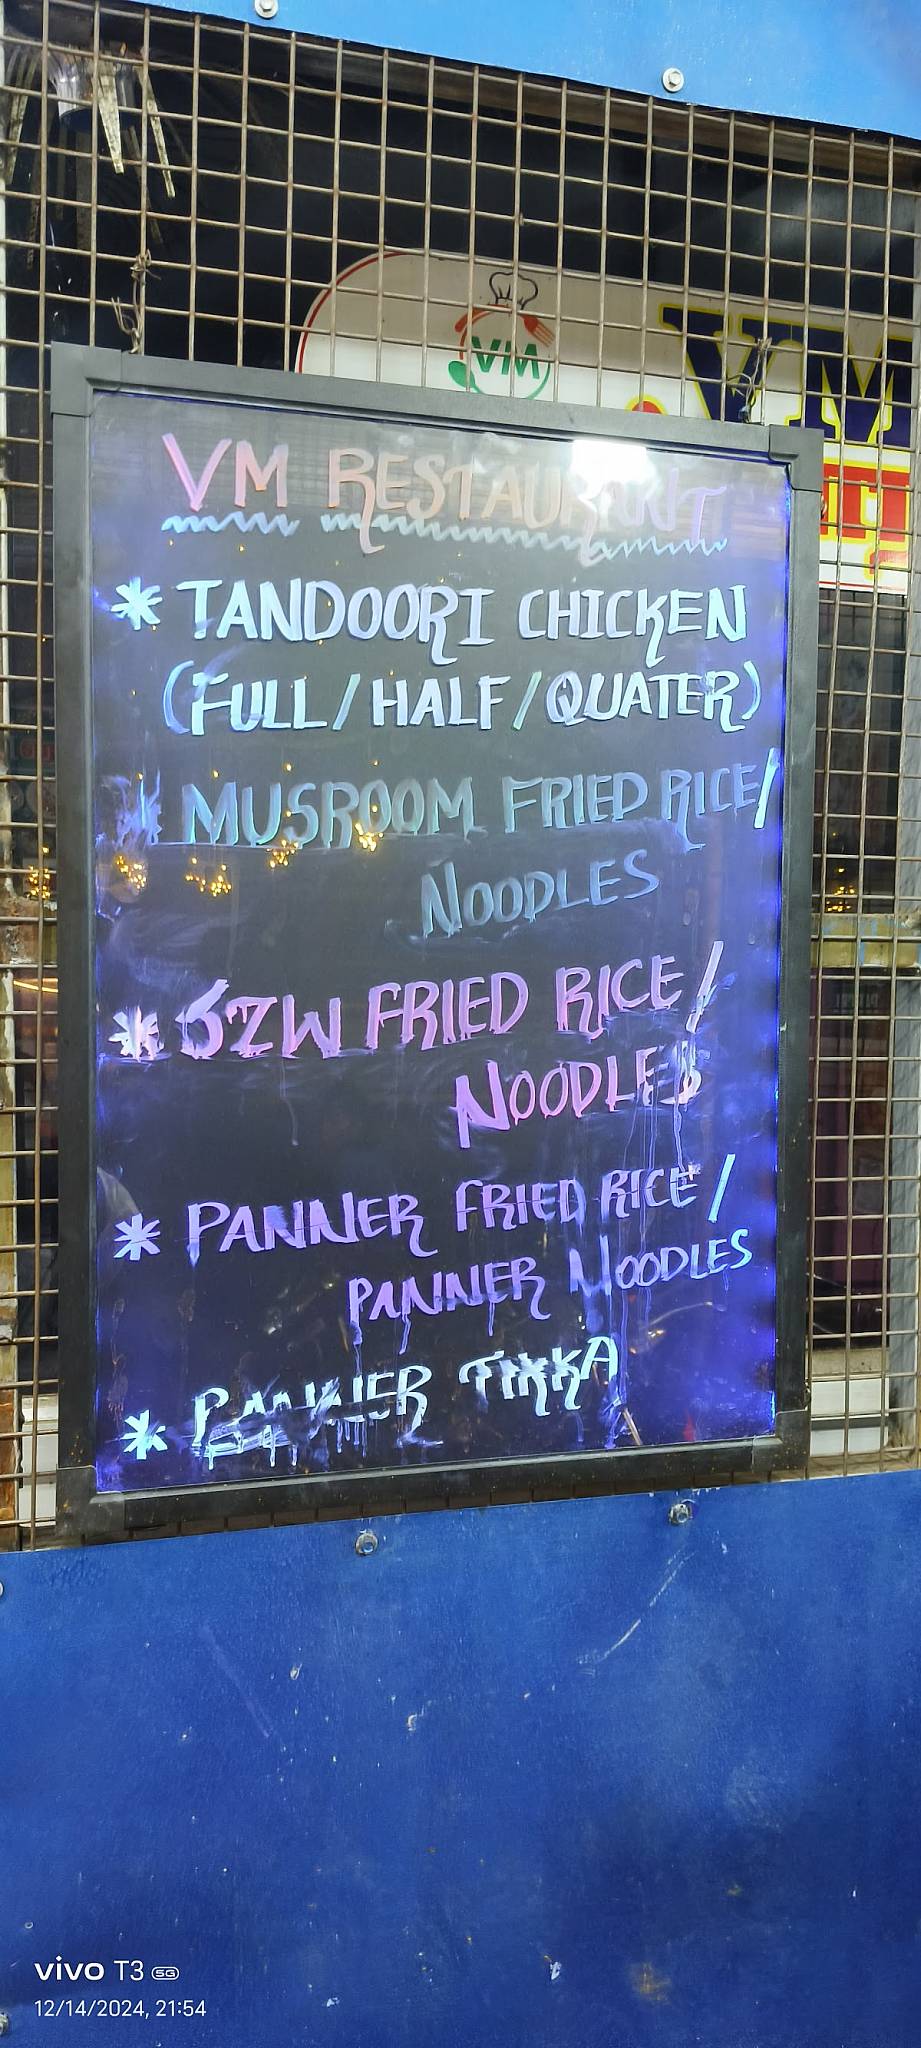 VM
VM
VM RESTAURANT
* TANDOORI CHICKEN
(FULL/HALF/QUATER)
* MUSROOM FRIED RICE/
NOODLES
* SZW FRIED RICE/
NOODLES
* PANNER FRIED RICE/
PANNER NOODLES
* PANNER TIKKA
vivo T3 5G
12/14/2024, 21:54